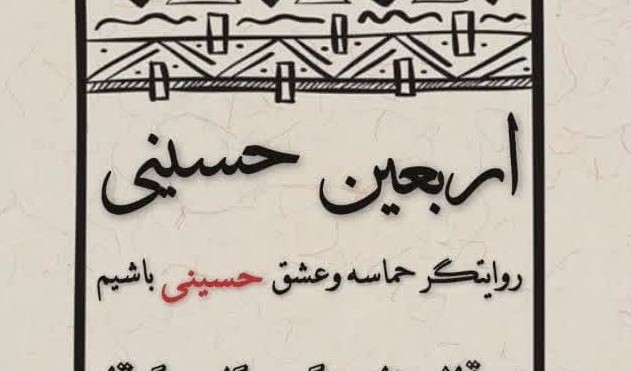 اربعین حسینی
روایتگر حماسه و عشق حسینی باشیم